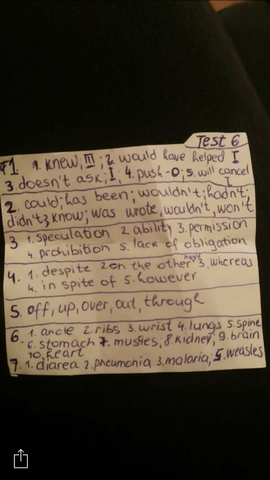 Test 6
1 1. knew; III; 2. would have helped I
3. doesn't ask; I; 4. push-0; 5. will cancel
I
2. could; has been; wouldn't; hadn't;
didn't; know; was wrote, wouldn't, won't
3 1. speculation 2. ability 3. permission
4. prohibition 5. lack of obligation
4. 1. despite 2. on the other hand 3. whereas
4. in spite of 5. however
5. off, up, over, out, through
6. 1. ancle 2. ribs 3. wrist 4. lungs 5. spine
6. stomach 7. muscles, 8 kidney, 9. brain
10. heart
7. 1. diarea 2. pneumonia 3. malaria, 5. weasles